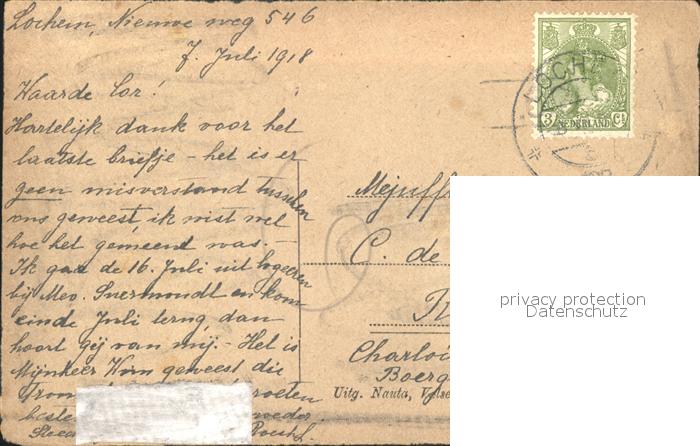 Lochem, Nieuwe weg 546
7. Juli 1918
Waarde Cor!
Hartelijk dank voor het
laatste briefje - het is er
geen misverstand tusschen
ons geweest, ik wist wel
hoe het gemeend was. -
Ik gaa de 16. Juli uit logeeren
bij Mev. Suermondt en kom
einde Juli terug, dan
hoort gij van mij. - Het is
Mijnheer Worm geweest die
beste
LOCHEM
3 Ct
NEDERLAND
Mejuff
C. de
Charlois
Boerg
Uitg. Nauta, Velse
privacy protection
Datenschutz